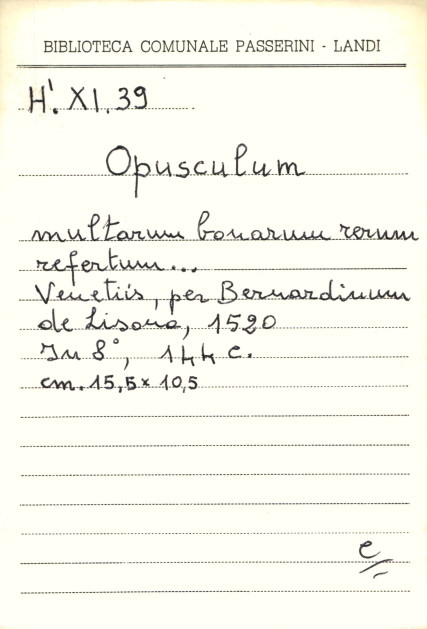 BIBLIOTECA COMUNALE PASSERINI - LANDI
H'. XI. 39
Opusculum
multarum bonarum rerum
refertum...
Venetiis, per Bernardinum
de Lisona, 1520
In 8°, 144 c.
cm. 15,5 x 10,5
e